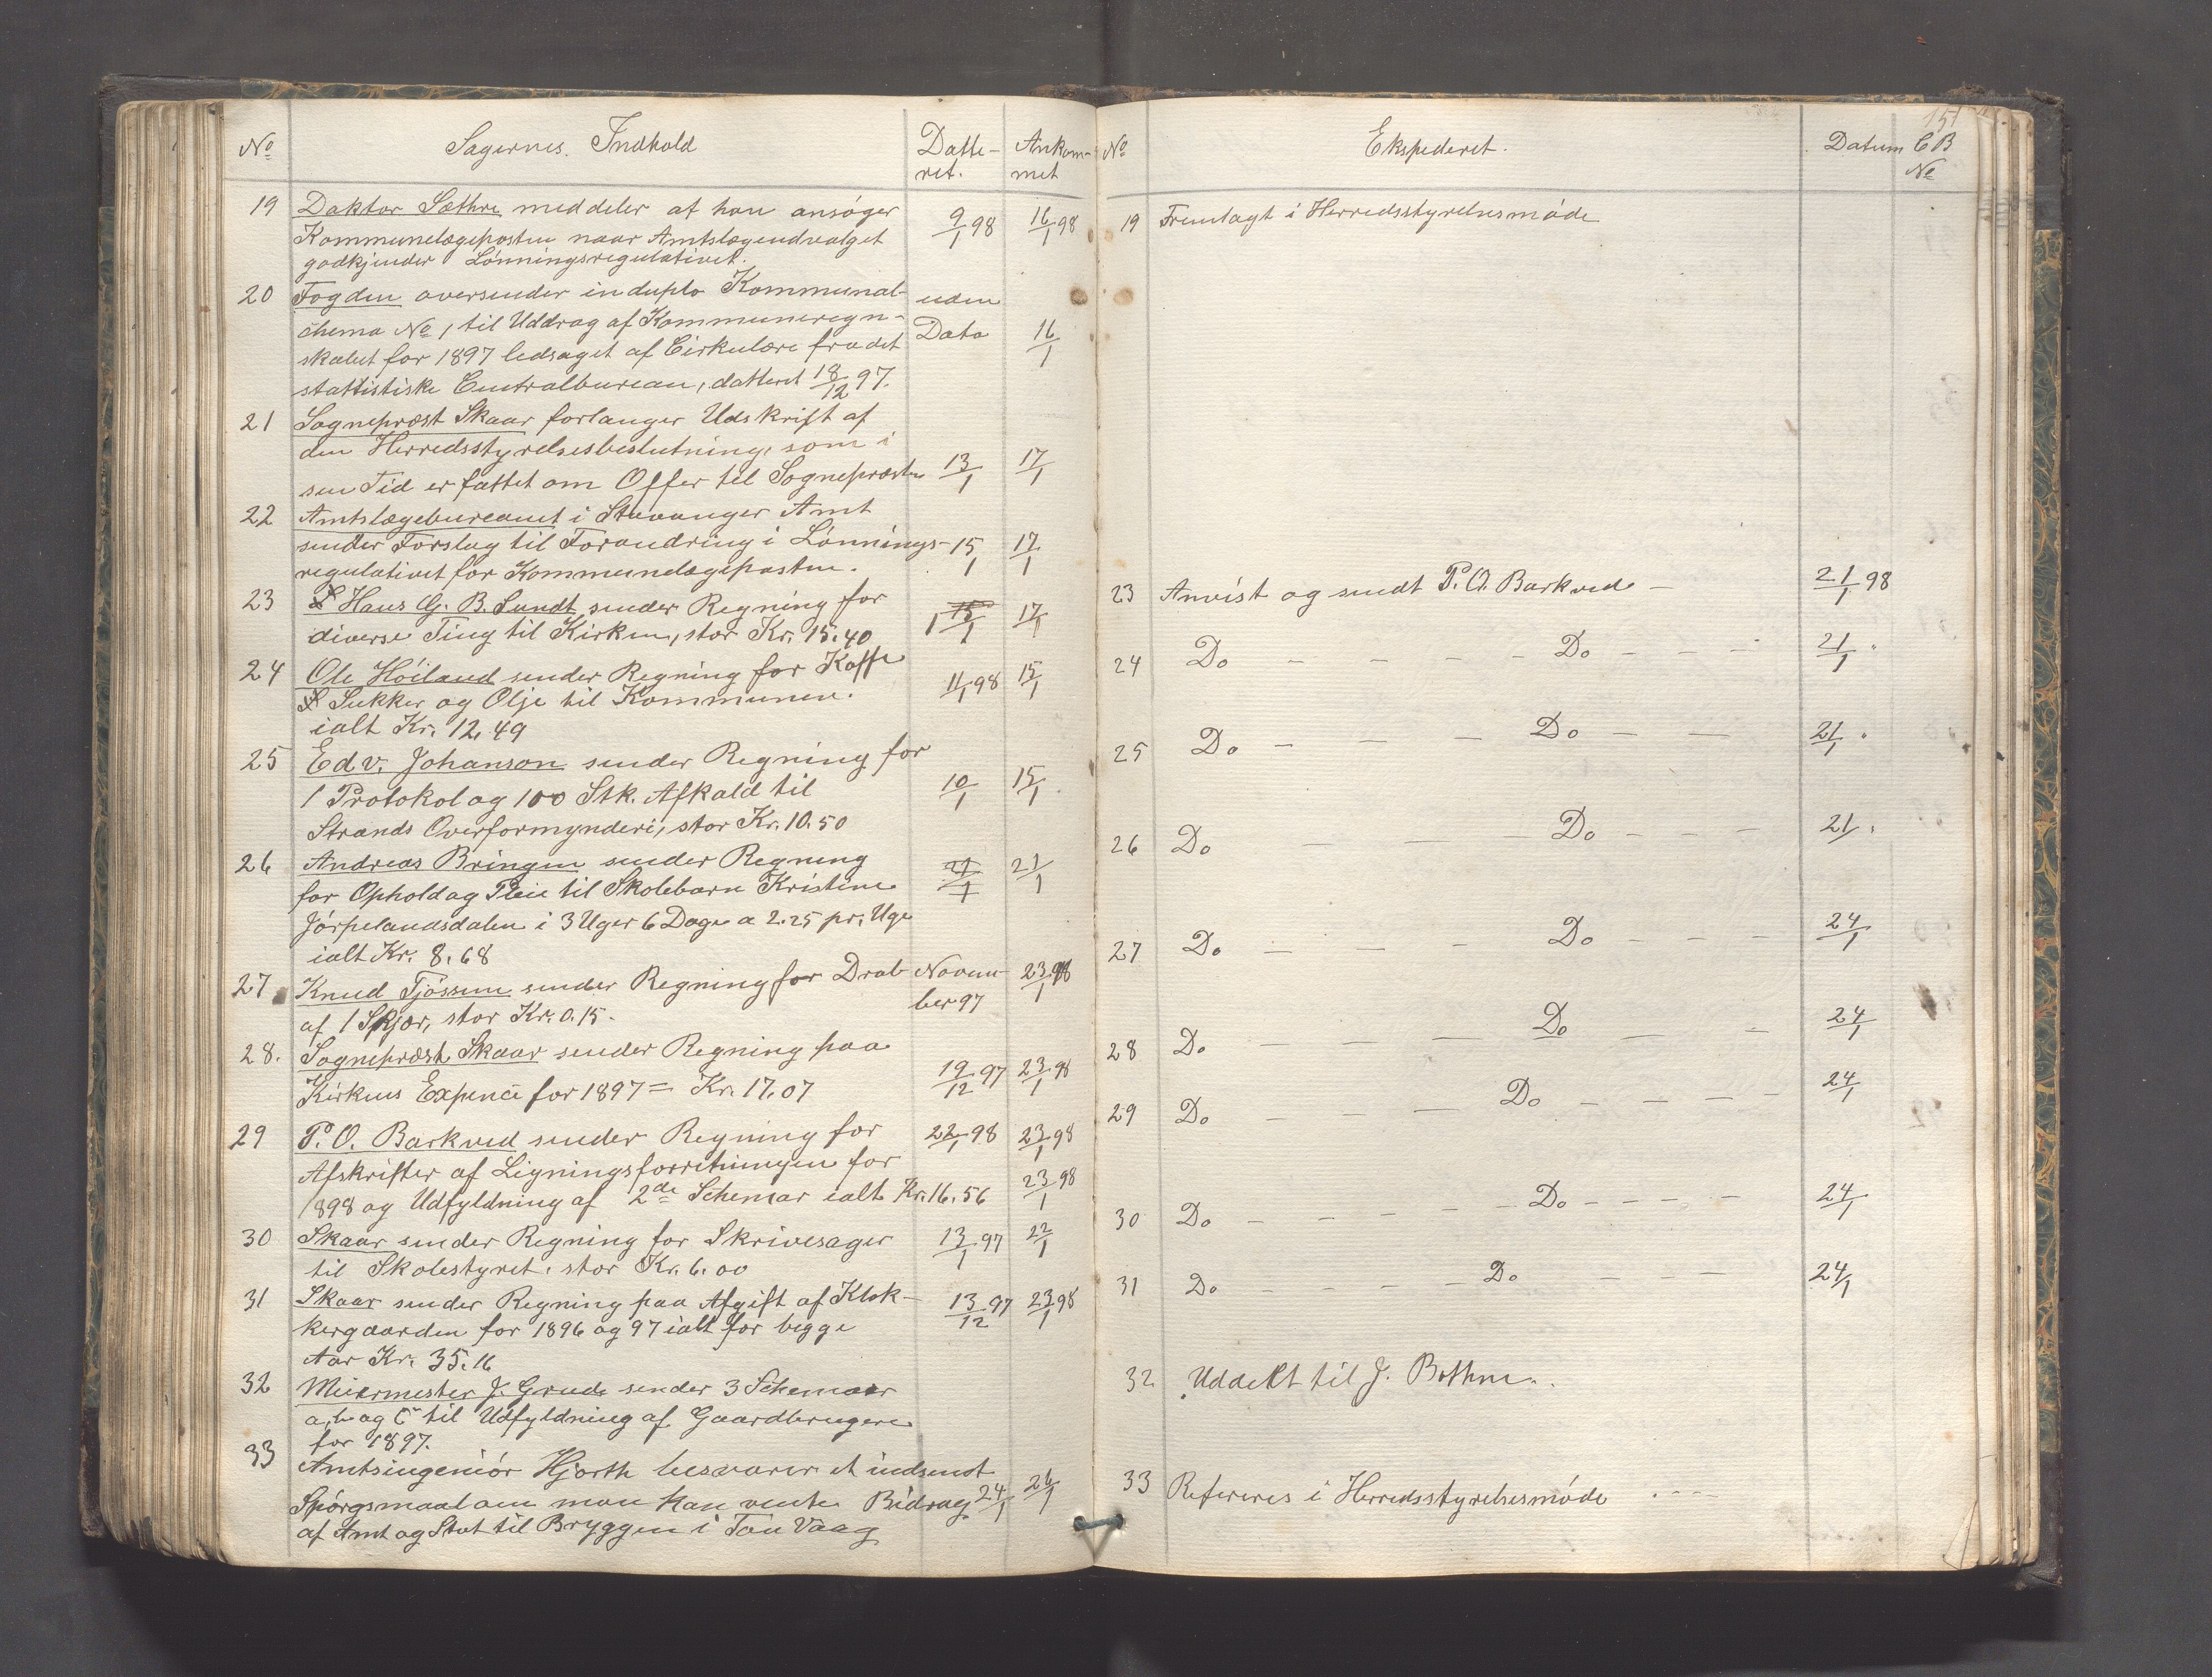 No Sagernes Indhold Datte- Ankom-
ret. met
19 Doktor Sæthre meddeler at han ansøger
Kommunelægeposten naar Amtslægeudvalget 9/1 98 16/1 98
godkjender Lønningsregulativet.
20 Fogden oversender in duplo Kommunal- uden
chema No 1, til Uddrag af Kommuneregn- Dato 16/1
skabet for 1897 ledsaget af Cirkulære fra det
stattistiske Centralbureau, datteret 18/12 97.
21 Sogneprest Skaar forlanger Udskrift af
den Herredsstyrelsesbeslutning, som i
sin Tid er fattet om Offer til Sognepræsten 13/1 17/1
22 Amtslægebureauet i Stavanger Amt
sender Forslag til Forandring i Lønnings- 15/1 17/1
regulativet for Kommunelægeposten.
23 Hans G. B. Sundt sender Regning for
diverse Ting til Kirken, stor Kr. 15.40 17/1
24 Ole Høiland sender Regning for Kaffe
Sukker og Olje til Kommunen. 11/1 98 15/1
ialt Kr. 12,49
25 Edv. Johanson sender Regning for
1 Protokol og 100 Stk. Afkald til 10/1 15/1
Strands Overformynderi, stor Kr. 10.50
26 Andreas Bringen sender Regning
for Ophold og Pleie til Skolebarn Kristine 21/1 21/1
Jørpelandsdalen i 3 Uger 6 Dage a 2.25 pr. Uge
ialt Kr. 8.68
27 Knud Tjøssem sender Regning for Drab Novem- 23/1 98
af 1 Skjor, stor Kr. 0.15. ber 97
28. Sogneprest Skaar sender Regning paa
Kirkens Expence for 1897 = Kr. 17.07 19/12 97 23/1 98
29 P. O. Barkved sender Regning for 22/1 98 23/1 98
Afskrifter af Ligningsforretningen for
1898 og Udfyldning af 2de Schemar ialt Kr. 16.56 23/1 98
30 Skaar sender Regning for Skrivesager 13/1 97 22/1
til Skolestyret. stor Kr. 6.00
31 Skaar sender Regning paa Afgift af Klok-
kergaarden for 1896 og 97 ialt for begge 13/12 97 23/1 98
Aar Kr. 35.16
32 Meiermester J. Grude sender 3 Schemaer
a, b og C til Udfyldning af Gaardbrugere
for 1897.
33 Amtsingeniør Hjorth besvarer et indsendt
Spørgsmaal om man kan vente Bidrag 24/1 26/1
af Amt og Stat til Bryggen i Tau Vaag
151
No Ekspederet. Datum CB
No
19 Fremlagt i Herredsstyrelsesmøde
23 Anvist og sendt P. O. Barkved - 21/1 98
24 Do - - - - Do - - - 21/1 "
25 Do - - - Do - - 21/1 "
26 Do - - - Do - - - 21/1 "
27 Do - - - Do - - - 24/1
28 Do - - - - Do - - 24/1
29 Do - - - Do - - - - 24/1
30 Do - - - - - Do - - - - 24/1
31 Do - - - Do - - - 24/1
32 Uddelt til J. Bothne.
33 Refereres i Herredsstyrelsesmøde - - -